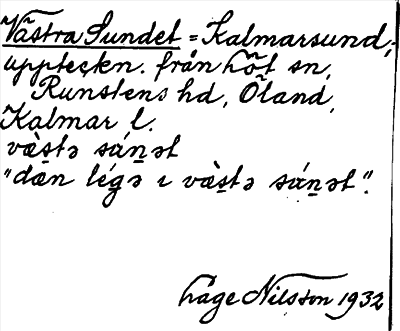 Västra Sundet = Kalmarsund,
uppteckn. från Löt sn,
Runstens hd, Öland,
Kalmar l.
vӕ̀s̱tə sún̠ət
"dæn lég̠ə ı vàs̱tə sún̠ət".
Åge Nilsson 1932